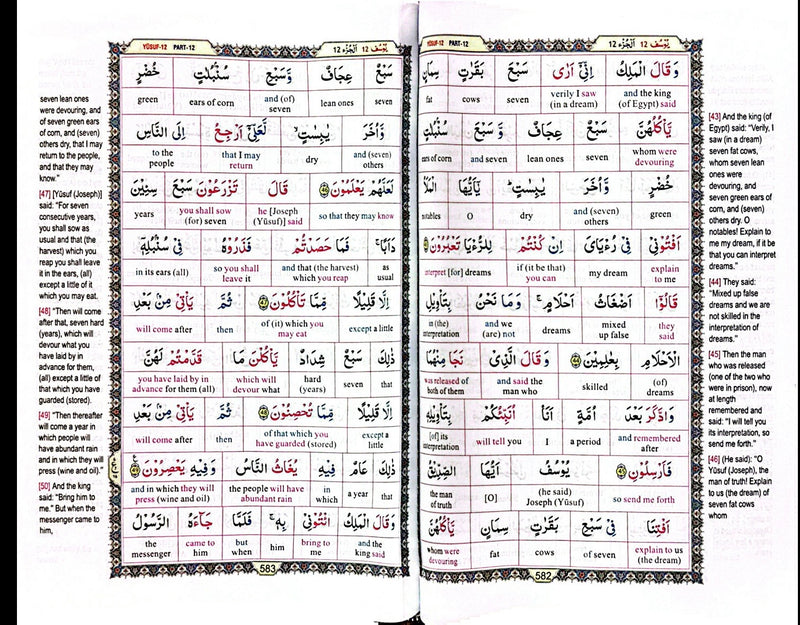 YÛSUF-12 PART-12
يُوسُف 12 اَلْجُزْء 12
وَقَالَ الْمَلِكُ اِنِّىْٓ اَرٰى سَبْعَ بَقَرٰتٍ سِمَانٍ
and the king (of Egypt) said verily I saw (in a dream) seven cows fat
يَّاْكُلُهُنَّ سَبْعٌ عِجَافٌ وَّسَبْعَ سُنْۢبُلٰتٍ
whom were devouring seven lean ones and seven ears of corn
خُضْرٍ وَّاُخَرَ يٰبِسٰتٍ ؕ يٰٓاَيُّهَا الْمَلَاُ
green and (seven) others dry O notables
اَفْتُوْنِىْ فِىْ رُءْيَاىَ اِنْ كُنْتُمْ لِلرُّءْيَا تَعْبُرُوْنَ ﴿43﴾
explain to me my dream if (it be that) you can interpret [for] dreams
قَالُوْٓا اَضْغَاثُ اَحْلَامٍ ۚ وَمَا نَحْنُ بِتَاْوِيْلِ
they said mixed up false dreams and we (are) not in (the) interpretation
الْاَحْلَامِ بِعٰلِمِيْنَ ﴿44﴾ وَقَالَ الَّذِىْ نَجَا مِنْهُمَا
(of) dreams skilled and said the man who was released of both of them
وَادَّكَرَ بَعْدَ اُمَّةٍ اَنَا اُنَبِّئُكُمْ بِتَاْوِيْلِهٖ
and remembered after a period I will tell you [of] its interpretation
فَاَرْسِلُوْنِ ﴿45﴾ يُوْسُفُ اَيُّهَا الصِّدِّيْقُ
so send me forth (he said) Joseph (Yûsuf) [O] the man of truth
اَفْتِنَا فِىْ سَبْعِ بَقَرٰتٍ سِمَانٍ يَّاْكُلُهُنَّ
explain to us (the dream) of seven cows fat whom were devouring
582
[43] And the king (of
Egypt) said: "Verily, I
saw (in a dream)
seven fat cows,
whom seven lean
ones were
devouring, and
seven green ears of
corn, and (seven)
others dry. O
notables! Explain to
me my dream, if it be
that you can interpret
dreams."
[44] They said:
"Mixed up false
dreams and we are
not skilled in the
interpretation of
dreams."
[45] Then the man
who was released
(one of the two who
were in prison), now
at length
remembered and
said: "I will tell you
its interpretation, so
send me forth."
[46] (He said): "O
Yûsuf (Joseph), the
man of truth! Explain
to us (the dream) of
seven fat cows
whom
YÛSUF-12 PART-12
يُوسُف 12 اَلْجُزْء 12
سَبْعٌ عِجَافٌ وَّسَبْعِ سُنْۢبُلٰتٍ خُضْرٍ
seven lean ones and (of) seven ears of corn green
وَّاُخَرَ يٰبِسٰتٍ ۙ لَّعَلِّىْٓ اَرْجِعُ اِلَى النَّاسِ
and (seven) others dry that I may return to the people
لَعَلَّهُمْ يَعْلَمُوْنَ ﴿46﴾ قَالَ تَزْرَعُوْنَ سَبْعَ سِنِيْنَ
so that they may know he [Joseph (Yûsuf)] said you shall sow (for) seven years
دَاَبًا ۚ فَمَا حَصَدْتُّمْ فَذَرُوْهُ فِىْ سُنْۢبُلِهٖٓ
as usual and that (the harvest) which you reap so you shall leave it in its ears (all)
اِلَّا قَلِيْلًا مِّمَّا تَاْكُلُوْنَ ﴿47﴾ ثُمَّ يَاْتِىْ مِنْۢ بَعْدِ
except a little of (it) which you may eat then will come after
ذٰلِكَ سَبْعٌ شِدَادٌ يَّاْكُلْنَ مَا قَدَّمْتُمْ لَهُنَّ
that seven hard (years) which will devour what you have laid by in advance for them (all)
اِلَّا قَلِيْلًا مِّمَّا تُحْصِنُوْنَ ﴿48﴾ ثُمَّ يَاْتِىْ مِنْۢ بَعْدِ
except a little of that which you have guarded (stored) then will come after
ذٰلِكَ عَامٌ فِيْهِ يُغَاثُ النَّاسُ وَفِيْهِ يَعْصِرُوْنَ ﴿49﴾
that a year in which the people will have abundant rain and in which they will press (wine and oil)
وَقَالَ الْمَلِكُ ائْتُوْنِىْ بِهٖ ۚ فَلَمَّا جَآءَهُ الرَّسُوْلُ
and the king said bring to me him but when came to him the messenger
583
seven lean ones
were devouring, and
of seven green ears
of corn, and (seven)
others dry, that I may
return to the people,
and that they may
know."
[47] [Yûsuf (Joseph)]
said: "For seven
consecutive years,
you shall sow as
usual and that (the
harvest) which you
reap you shall leave
it in the ears, (all)
except a little of it
which you may eat.
[48] "Then will come
after that, seven hard
(years), which will
devour what you
have laid by in
advance for them,
(all) except a little of
that which you have
guarded (stored).
[49] "Then thereafter
will come a year in
which people will
have abundant rain
and in which they will
press (wine and oil)."
[50] And the king
said: "Bring him to
me." But when the
messenger came to
him,